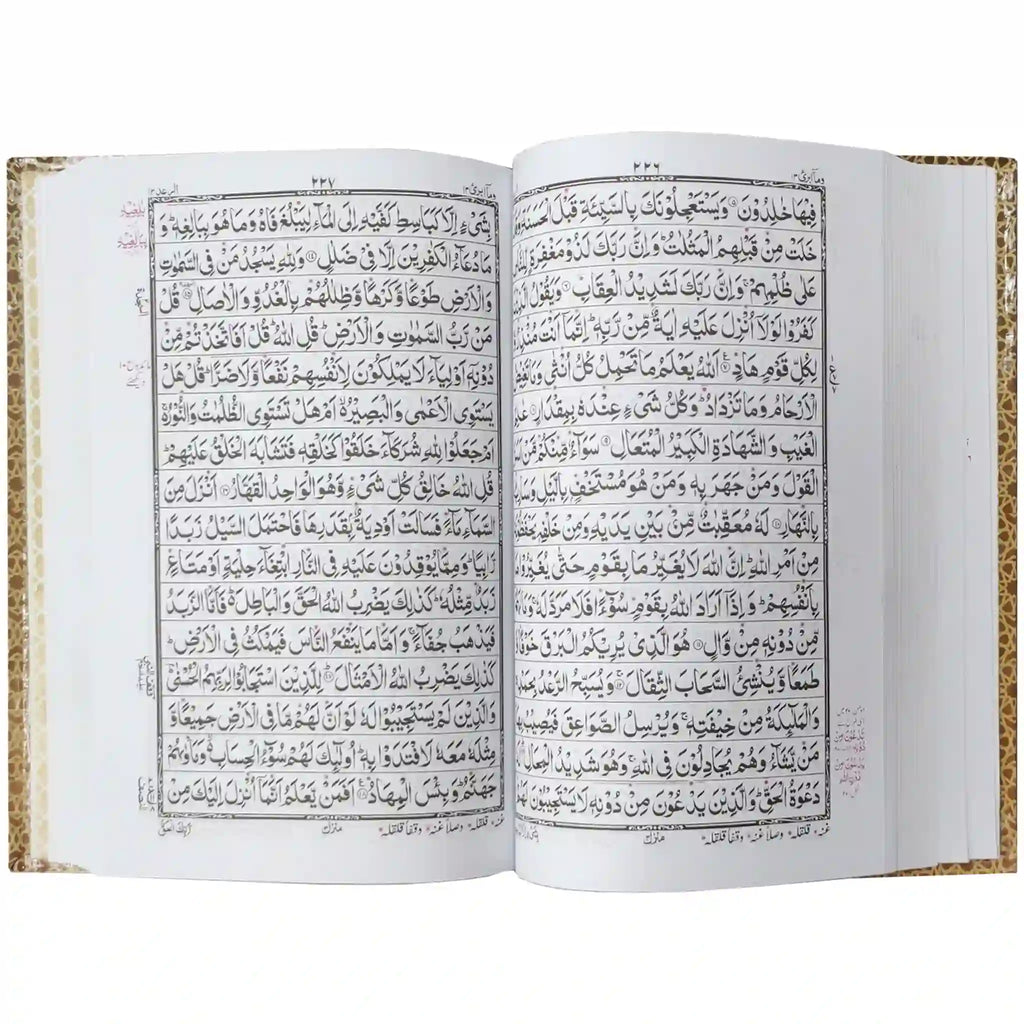 وما ابرئ ١٣
٢٢٦
فِيْهَا خٰلِدُوْنَ ۝٥ وَيَسْتَعْجِلُوْنَكَ بِالسَّيِّئَةِ قَبْلَ الْحَسَنَةِ
خَلَتْ مِنْ قَبْلِهِمُ الْمَثُلٰتُ ؕ وَاِنَّ رَبَّكَ لَذُوْ مَغْفِرَةٍ لِّلنَّاسِ
عَلٰى ظُلْمِهِمْ ۚ وَاِنَّ رَبَّكَ لَشَدِيْدُ الْعِقَابِ ۝٦ وَيَقُوْلُ
كَفَرُوْا لَوْلَاۤ اُنْزِلَ عَلَيْهِ اٰيَةٌ مِّنْ رَّبِّهٖ ؕ اِنَّمَاۤ اَنْتَ مُنْذِرٌ
لِكُلِّ قَوْمٍ هَادٍ ۝٧ اَللّٰهُ يَعْلَمُ مَا تَحْمِلُ كُلُّ اُنْثٰى وَمَا تَغِيْضُ
الْاَرْحَامُ وَمَا تَزْدَادُ ؕ وَكُلُّ شَيْءٍ عِنْدَهٗ بِمِقْدَارٍ ۝٨
الْغَيْبِ وَالشَّهَادَةِ الْكَبِيْرُ الْمُتَعَالِ ۝٩ سَوَآءٌ مِّنْكُمْ مَّنْ
الْقَوْلَ وَمَنْ جَهَرَ بِهٖ وَمَنْ هُوَ مُسْتَخْفٍۭ بِالَّيْلِ وَسَارِبٌۢ
بِالنَّهَارِ ۝١٠ لَهٗ مُعَقِّبٰتٌ مِّنْۢ بَيْنِ يَدَيْهِ وَمِنْ خَلْفِهٖ يَحْفَظُوْنَهٗ
مِنْ اَمْرِ اللّٰهِ ؕ اِنَّ اللّٰهَ لَا يُغَيِّرُ مَا بِقَوْمٍ حَتّٰى يُغَيِّرُوْا مَا
بِاَنْفُسِهِمْ ؕ وَاِذَاۤ اَرَادَ اللّٰهُ بِقَوْمٍ سُوْٓءًا فَلَا مَرَدَّ لَهٗ ۚ وَمَا
مِّنْ دُوْنِهٖ مِنْ وَّالٍ ۝١١ هُوَ الَّذِيْ يُرِيْكُمُ الْبَرْقَ خَوْفًا
طَمَعًا وَّيُنْشِئُ السَّحَابَ الثِّقَالَ ۝١٢ وَيُسَبِّحُ الرَّعْدُ بِحَمْدِهٖ
وَالْمَلٰٓئِكَةُ مِنْ خِيْفَتِهٖ ۚ وَيُرْسِلُ الصَّوَاعِقَ فَيُصِيْبُ بِهَا
مَنْ يَّشَآءُ وَهُمْ يُجَادِلُوْنَ فِي اللّٰهِ ۚ وَهُوَ شَدِيْدُ الْمِحَالِ ۝١٣
دَعْوَةُ الْحَقِّ ؕ وَالَّذِيْنَ يَدْعُوْنَ مِنْ دُوْنِهٖ لَا يَسْتَجِيْبُوْنَ لَهُمْ
غنه * قلقله * وصلا غنه * وقفا قلقله * منزل
وما ابرئ ١٣
٢٢٧
الرعد ١٣
بِشَيْءٍ اِلَّا كَبَاسِطِ كَفَّيْهِ اِلَى الْمَآءِ لِيَبْلُغَ فَاهُ وَمَا هُوَ بِبَالِغِهٖ ؕ وَ
مَا دُعَآءُ الْكٰفِرِيْنَ اِلَّا فِيْ ضَلٰلٍ ۝١٤ وَلِلّٰهِ يَسْجُدُ مَنْ فِي السَّمٰوٰتِ
وَالْاَرْضِ طَوْعًا وَّكَرْهًا وَّظِلٰلُهُمْ بِالْغُدُوِّ وَالْاٰصَالِ ۝١٥ قُلْ
مَنْ رَّبُّ السَّمٰوٰتِ وَالْاَرْضِ ؕ قُلِ اللّٰهُ ؕ قُلْ اَفَاتَّخَذْتُمْ مِّنْ
دُوْنِهٖۤ اَوْلِيَآءَ لَا يَمْلِكُوْنَ لِاَنْفُسِهِمْ نَفْعًا وَّلَا ضَرًّا ؕ قُلْ هَلْ
يَسْتَوِي الْاَعْمٰى وَالْبَصِيْرُ ۙ اَمْ هَلْ تَسْتَوِي الظُّلُمٰتُ وَالنُّوْرُ ۚ
اَمْ جَعَلُوْا لِلّٰهِ شُرَكَآءَ خَلَقُوْا كَخَلْقِهٖ فَتَشَابَهَ الْخَلْقُ عَلَيْهِمْ ؕ
قُلِ اللّٰهُ خَالِقُ كُلِّ شَيْءٍ وَّهُوَ الْوَاحِدُ الْقَهَّارُ ۝١٦ اَنْزَلَ مِنَ
السَّمَآءِ مَآءً فَسَالَتْ اَوْدِيَةٌۢ بِقَدَرِهَا فَاحْتَمَلَ السَّيْلُ زَبَدًا
رَّابِيًا ؕ وَمِمَّا يُوْقِدُوْنَ عَلَيْهِ فِي النَّارِ ابْتِغَآءَ حِلْيَةٍ اَوْ مَتَاعٍ
زَبَدٌ مِّثْلُهٗ ؕ كَذٰلِكَ يَضْرِبُ اللّٰهُ الْحَقَّ وَالْبَاطِلَ ؕ فَاَمَّا الزَّبَدُ
فَيَذْهَبُ جُفَآءً ۚ وَاَمَّا مَا يَنْفَعُ النَّاسَ فَيَمْكُثُ فِي الْاَرْضِ ؕ
كَذٰلِكَ يَضْرِبُ اللّٰهُ الْاَمْثَالَ ۝١٧ لِلَّذِيْنَ اسْتَجَابُوْا لِرَبِّهِمُ الْحُسْنٰى ؔ
وَالَّذِيْنَ لَمْ يَسْتَجِيْبُوْا لَهٗ لَوْ اَنَّ لَهُمْ مَّا فِي الْاَرْضِ جَمِيْعًا وَّ
مِثْلَهٗ مَعَهٗ لَافْتَدَوْا بِهٖ ؕ اُولٰٓئِكَ لَهُمْ سُوْٓءُ الْحِسَابِ ۙ وَمَاْوٰىهُمْ
جَهَنَّمُ ؕ وَبِئْسَ الْمِهَادُ ۝١٨ اَفَمَنْ يَّعْلَمُ اَنَّمَاۤ اُنْزِلَ اِلَيْكَ مِنْ
غنه * قلقله * وصلا غنه * وقفا قلقله * منزل
رَّبِّكَ الْحَقُّ